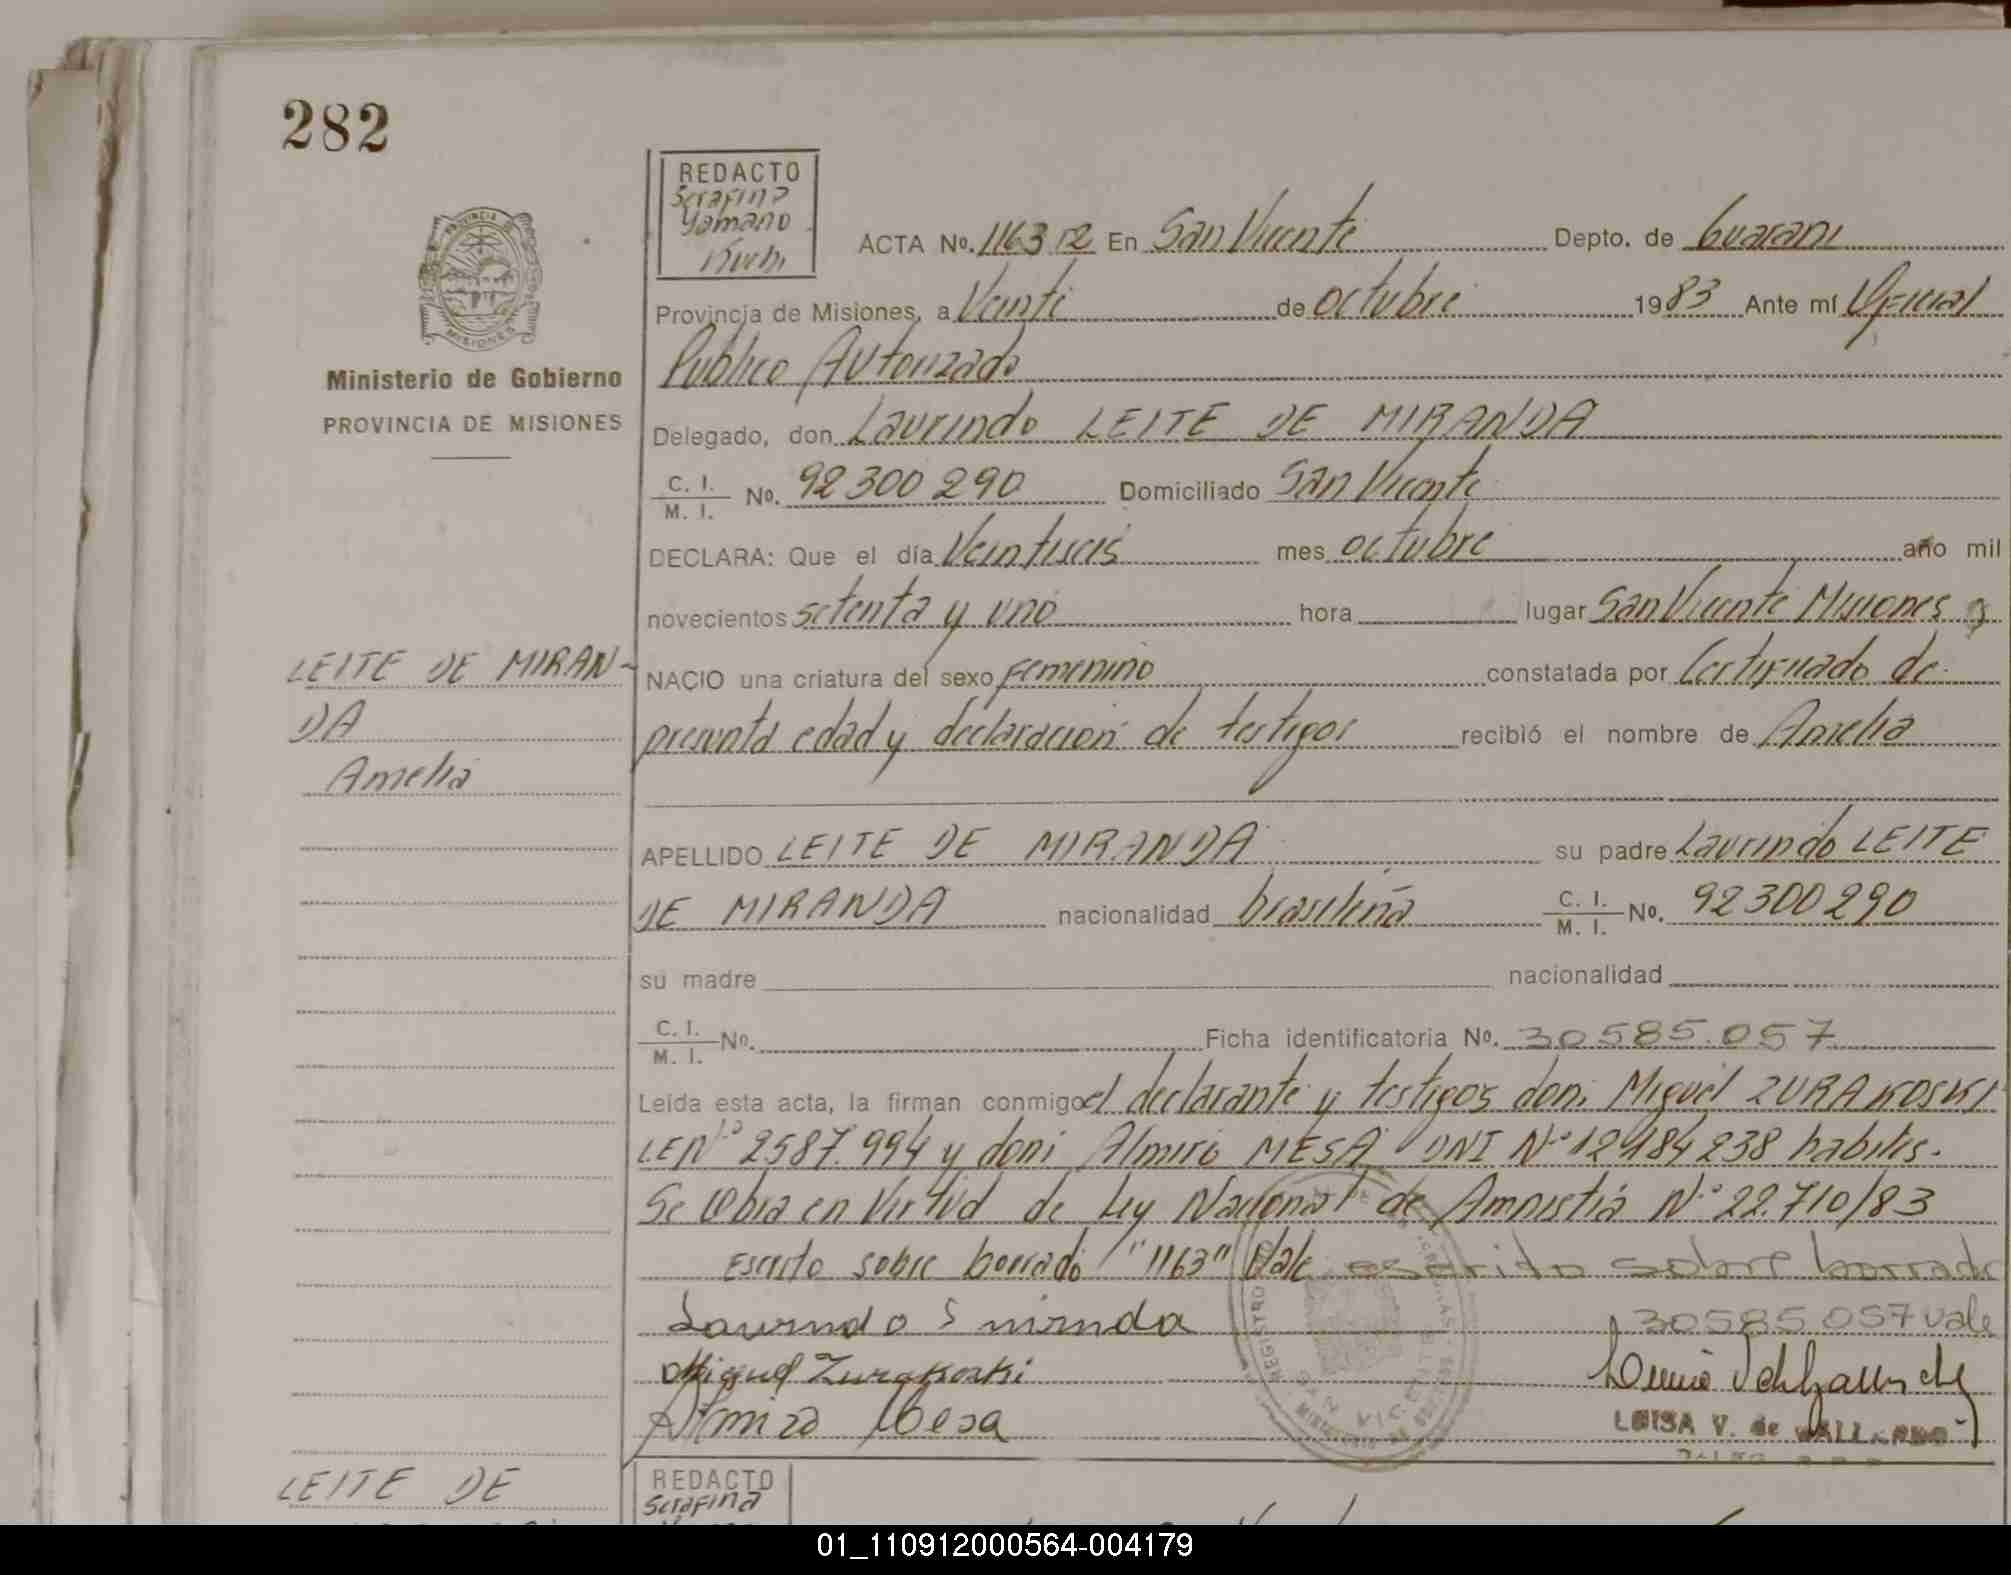 282
REDACTO
Serafina
Yamano
PROVINCIA
MISIONES
ACTA No. 1163 T2 En San Vicente Depto. de Guarani
Provincia de Misiones, a Veinte de octubre 1983 Ante mí Oficial
Público Autorizado
Ministerio de Gobierno
PROVINCIA DE MISIONES
Delegado, don Laurindo LEITE DE MIRANDA
C. I.
M. I. No. 92300290 Domiciliado San Vicente
DECLARA: Que el día Veintiseis mes octubre año mil
novecientos setenta y uno hora lugar San Vicente Misiones
LEITE DE MIRAN-
DA
Amelia
NACIO una criatura del sexo femenino constatada por Certificado de
presunta edad y declaracion de testigos recibió el nombre de Amelia
APELLIDO LEITE DE MIRANDA su padre Laurindo LEITE
DE MIRANDA nacionalidad brasileña C. I.
M. I. No. 92300290
su madre nacionalidad
C. I.
M. I. No. Ficha identificatoria No. 30585.057
Leída esta acta, la firman conmigo el declarante y testigos don: Miguel ZURAKOSKI
LE Nº 2587.994 y don: Almiro MESA DNI Nº 12484238 habiles.
Se Obra en Virtud de Ley Nacional de Amnistia Nº 22.710/83
Escrito sobre borrado "1163" Vale escrito sobre borrado
30585057 vale
Laurindo S mirnda
Miguel Zurakoski
Almiro Mesa
REGISTRO
SAN VICENTE
LUISA V. de
LEITE DE
REDACTO
Serafina
01_110912000564-004179